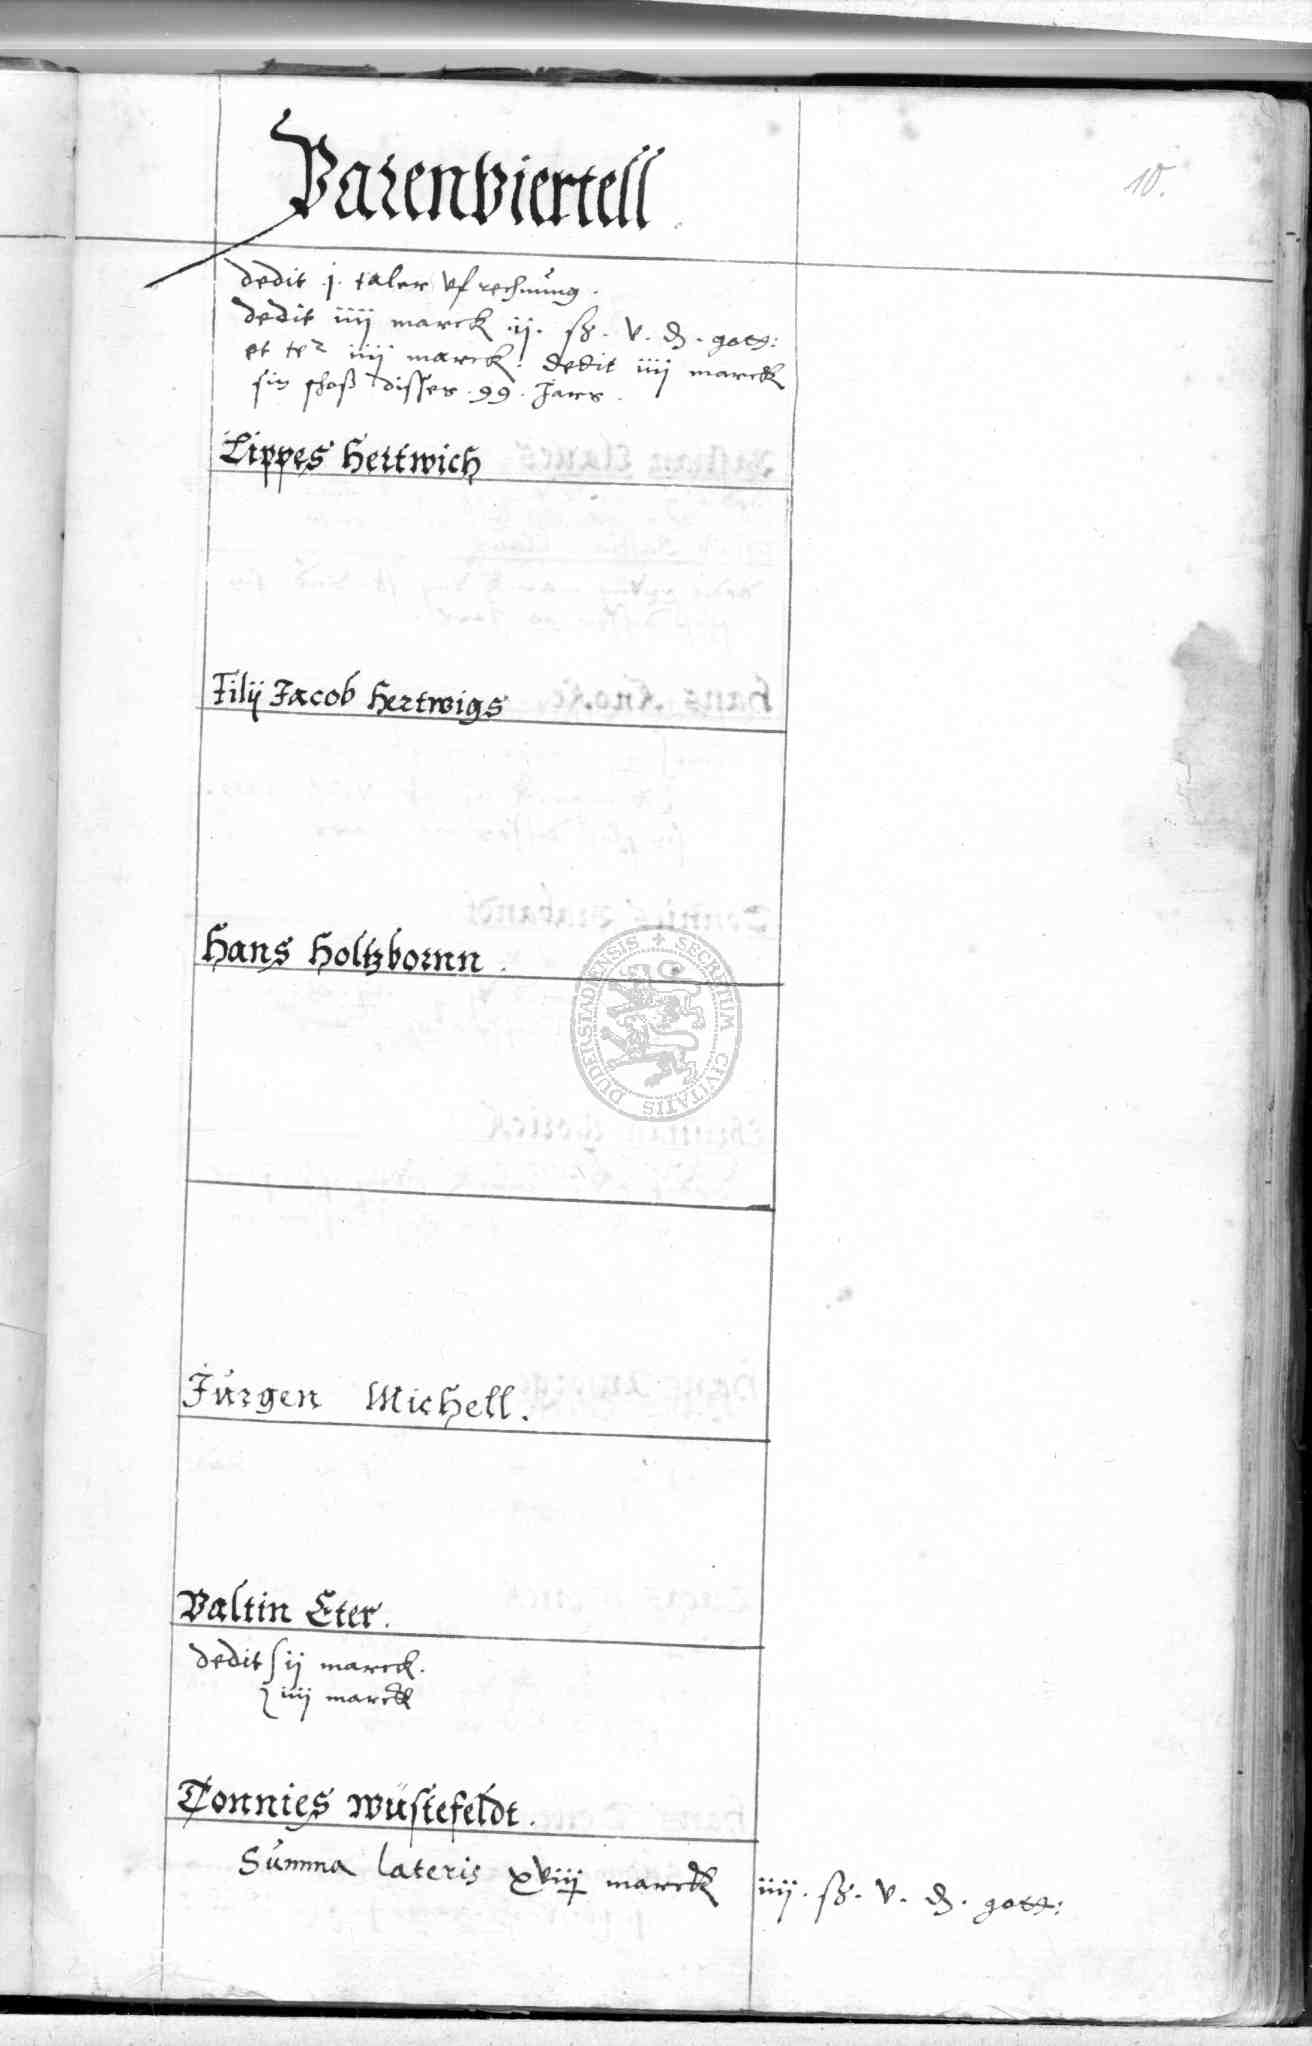 Varenviertell
10.
dedit .j. taler vf rechnung.
dedit iiij marck .ij. ß. v. ₰. gott:
et ter iiij marck. dedit iiij marck
sin schoß disses .99. Jars.
Lippes Hertwich
Filij Jacob Hertwigs
Hans Holtzbornn.
SECRETUM CIVITATIS DUDERSTADIENSIS
Jürgen Michell.
Valtin Eter.
dedit ij marck.
iiij marck
Tonnies wüstefeldt.
Summa lateris xviij marck iiij. ß. v. ₰. gott: